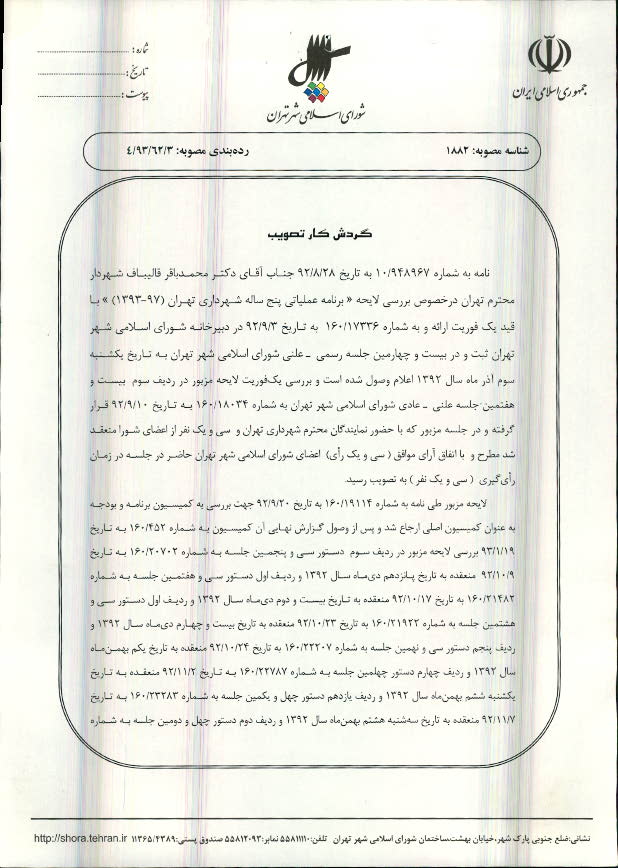 جمهوری اسلامی ایران
شورای اسلامی شهر تهران
شماره:
تاریخ:
پیوست:
شناسه مصوبه: ۱۸۸۲
رده‌بندی مصوبه: ۴/۹۳/۶۲/۳
گردش کار تصویب
نامه به شماره ۱۰/۹۴۸۹۶۷ به تاریخ ۹۲/۸/۲۸ جناب آقای دکتر محمدباقر قالیباف شهردار
محترم تهران درخصوص بررسی لایحه « برنامه عملیاتی پنج ساله شهرداری تهران (۹۷-۱۳۹۳) » با
قید یک فوریت ارائه و به شماره ۱۶۰/۱۷۳۳۶ به تاریخ ۹۲/۹/۳ در دبیرخانه شورای اسلامی شهر
تهران ثبت و در بیست و چهارمین جلسه رسمی ـ علنی شورای اسلامی شهر تهران به تاریخ یکشنبه
سوم آذر ماه سال ۱۳۹۲ اعلام وصول شده است و بررسی یک‌فوریت لایحه مزبور در ردیف سوم بیست و
هفتمین جلسه علنی ـ عادی شورای اسلامی شهر تهران به شماره ۱۶۰/۱۸۰۳۴ به تاریخ ۹۲/۹/۱۰ قرار
گرفته و در جلسه مزبور که با حضور نمایندگان محترم شهرداری تهران و سی و یک نفر از اعضای شورا منعقد
شد مطرح و با اتفاق آرای موافق ( سی و یک رأی) اعضای شورای اسلامی شهر تهران حاضر در جلسه در زمان
رأی‌گیری ( سی و یک نفر ) به تصویب رسید.
لایحه مزبور طی نامه به شماره ۱۶۰/۱۹۱۱۴ به تاریخ ۹۲/۹/۲۰ جهت بررسی به کمیسیون برنامه و بودجه
به عنوان کمیسیون اصلی ارجاع شد و پس از وصول گزارش نهایی آن کمیسیون به شماره ۱۶۰/۴۵۲ به تاریخ
۹۳/۱/۱۹ بررسی لایحه مزبور در ردیف سوم دستور سی و پنجمین جلسه به شماره ۱۶۰/۲۰۷۰۲ به تاریخ
۹۲/۱۰/۹ منعقده به تاریخ پانزدهم دی‌ماه سال ۱۳۹۲ و ردیف اول دستور سی و هفتمین جلسه به شماره
۱۶۰/۲۱۴۸۲ به تاریخ ۹۲/۱۰/۱۷ منعقده به تاریخ بیست و دوم دی‌ماه سال ۱۳۹۲ و ردیف اول دستور سی و
هشتمین جلسه به شماره ۱۶۰/۲۱۹۲۲ به تاریخ ۹۲/۱۰/۲۳ منعقده به تاریخ بیست و چهارم دی‌ماه سال ۱۳۹۲ و
ردیف پنجم دستور سی و نهمین جلسه به شماره ۱۶۰/۲۲۲۰۷ به تاریخ ۹۲/۱۰/۲۴ منعقده به تاریخ یکم بهمن‌ماه
سال ۱۳۹۲ و ردیف چهارم دستور چهلمین جلسه به شماره ۱۶۰/۲۲۷۸۷ به تاریخ ۹۲/۱۱/۲ منعقده به تاریخ
یکشنبه ششم بهمن‌ماه سال ۱۳۹۲ و ردیف یازدهم دستور چهل و یکمین جلسه به شماره ۱۶۰/۲۳۲۸۳ به تاریخ
۹۲/۱۱/۷ منعقده به تاریخ سه‌شنبه هشتم بهمن‌ماه سال ۱۳۹۲ و ردیف دوم دستور چهل و دومین جلسه به شماره
نشانی: ضلع جنوبی پارک شهر، خیابان بهشت، ساختمان شورای اسلامی شهر تهران تلفن: ۵۵۸۱۱۱۰ نمابر: ۵۵۸۱۲۰۹۳ صندوق پستی: ۱۱۳۶۵/۴۳۸۹ http://shora.tehran.ir